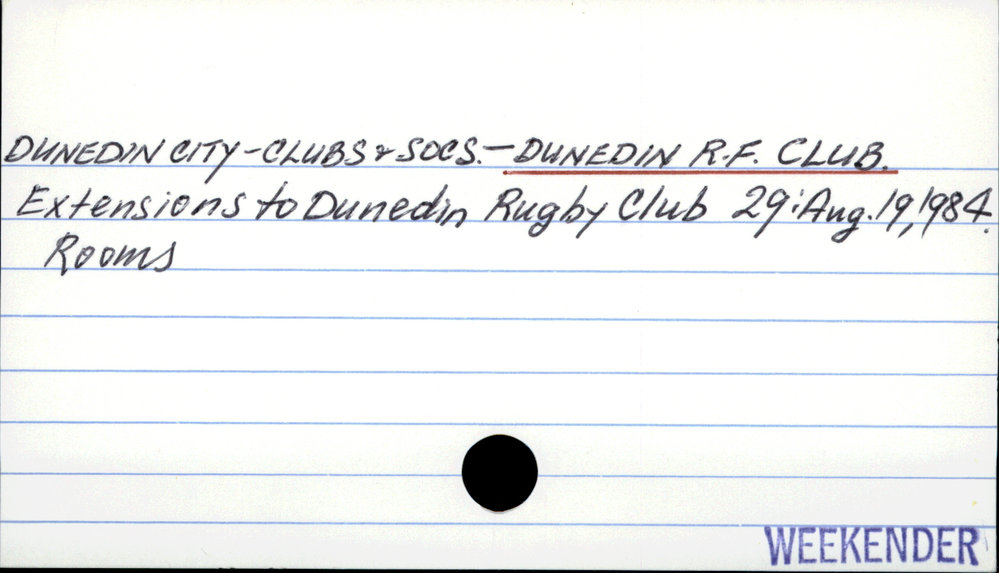 DUNEDIN CITY-CLUBS & SOCS.-DUNEDIN R.F. CLUB.
Extensions to Dunedin Rugby Club 29:Aug.19,1984.
Rooms
WEEKENDER